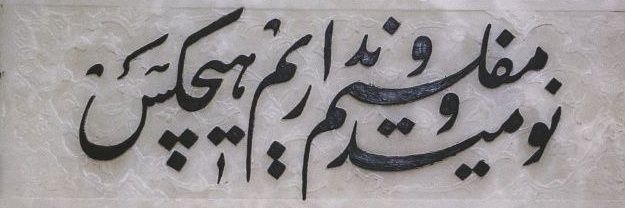 نومید و مفلسیم و نداریم هیچکس